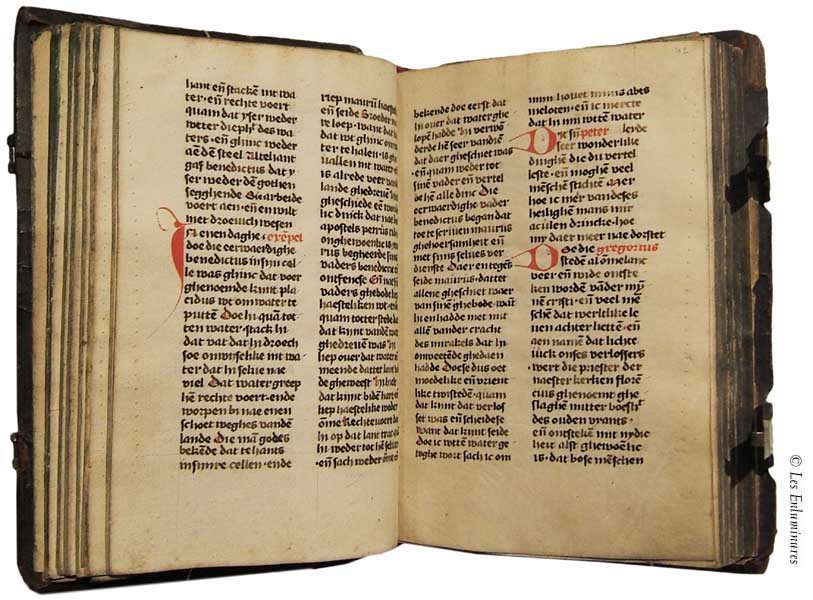 hant eñ stackē int wa
ter · eñ rechte voert
quam dat yser weder
wter diepħ des wa
ters · eñ ghinc weder
aē dē steel Altehant
gaf benedictus dat y-
ser weder dē gothen
segghende Siet arbeide
voert aen · eñ en wilt
niet droevich wesen
In enen daghe · exēpel
doe die eerwaerdighe
benedictus in sijn cel
le was ghinc dat voer
ghenoemde kint pla
cidus wt om water te
puttē Doe hi quā tot-
ten water stack hi
dat vat dat hi droech
soe onwiselike int wa-
ter dat hi selve nae
viel Dat water greep
hē rechte voert · ende
worpen bi nae enen
schoet weghes vandē
lande Die mā godes
bekēde dat te hants
in sijnre cellen · ende
riep maurū haesteli
eñ seide Broeder ma
re loep · want dat
dat wt ghinc om
ter te halen · is ghe
vallen int water · eñ
is alrede veer vanden
lande ghedreven
ghesciede eē wonder
lic dinck dat nae
apostels petrus tide
onghewoenlic is
rus begheerde sijns
vaders benedictie
ontfenese Eñ nae
vaders ghebode
haesteliken wt · eñ
quam totter stede dat
dat kint vandē water
ghedrevē was
liep over dat water
meende datter lant
de gheweest
dat kint bidē haer
liep haestelike weder
ome Rechte voert doe
hi op dat lant trat
hi weder tot hē selven
· eñ sach weder ōme eñ
bekende doe eerst dat
hi over dat water ghe
lopē hadde hi verwō
derde hē seer vandiē
dat daer gheschiet was
· eñ quam weder tot
sinē vader eñ vertel
de hē alle dinc Die
eerwaerdighe vader
benedictus began dat
toe te scriven maurus
ghehoersamheit eñ
niet sijns selves ver
dienste Daer enteghē
seide maurus · dattet
allene gheschiet waer
van sinē ghebode · wāt
hi en hadde niet mit
allē vander cracht
des mirakels dat hi
onwetēde ghedaen
hadde Doe sy dus oet
moedelike eñ vrient
like twistedē · quam
dat kint dat verlos
set was eñ scheidese
want dat kint seide
Doe ic wtē water ge
toghe wort sach ic om
42
mijn hovet mijns abts
meloten · eñ ic mercte
dat hi mi wttē water
Dyt sijn peter leerde
seer wonderlike
dinghē die du vertel
leste · eñ moghē veel
mēschē stichtē Mer
hoe ic mer van deses
heilighē mans mir
aculen drincke · hoe
my daer meer nae dorstet
Doe die gregorius
stedē al omelanc
veer eñ wide ontste
ken wordē vāder my
nē cristi · eñ veel mē
schē dat werltlike le
ven achter lietē · eñ
aen namē dat lichte
iuck onses verlossers
· wert die priester der
naester kerken floren
cius ghenoemt ghe
slaghē mitter boesh
des ouden viants ·
eñ ontstekē mit nydic
heit alst ghewoēlic
is · dat bose mēschen
© Les Enluminures